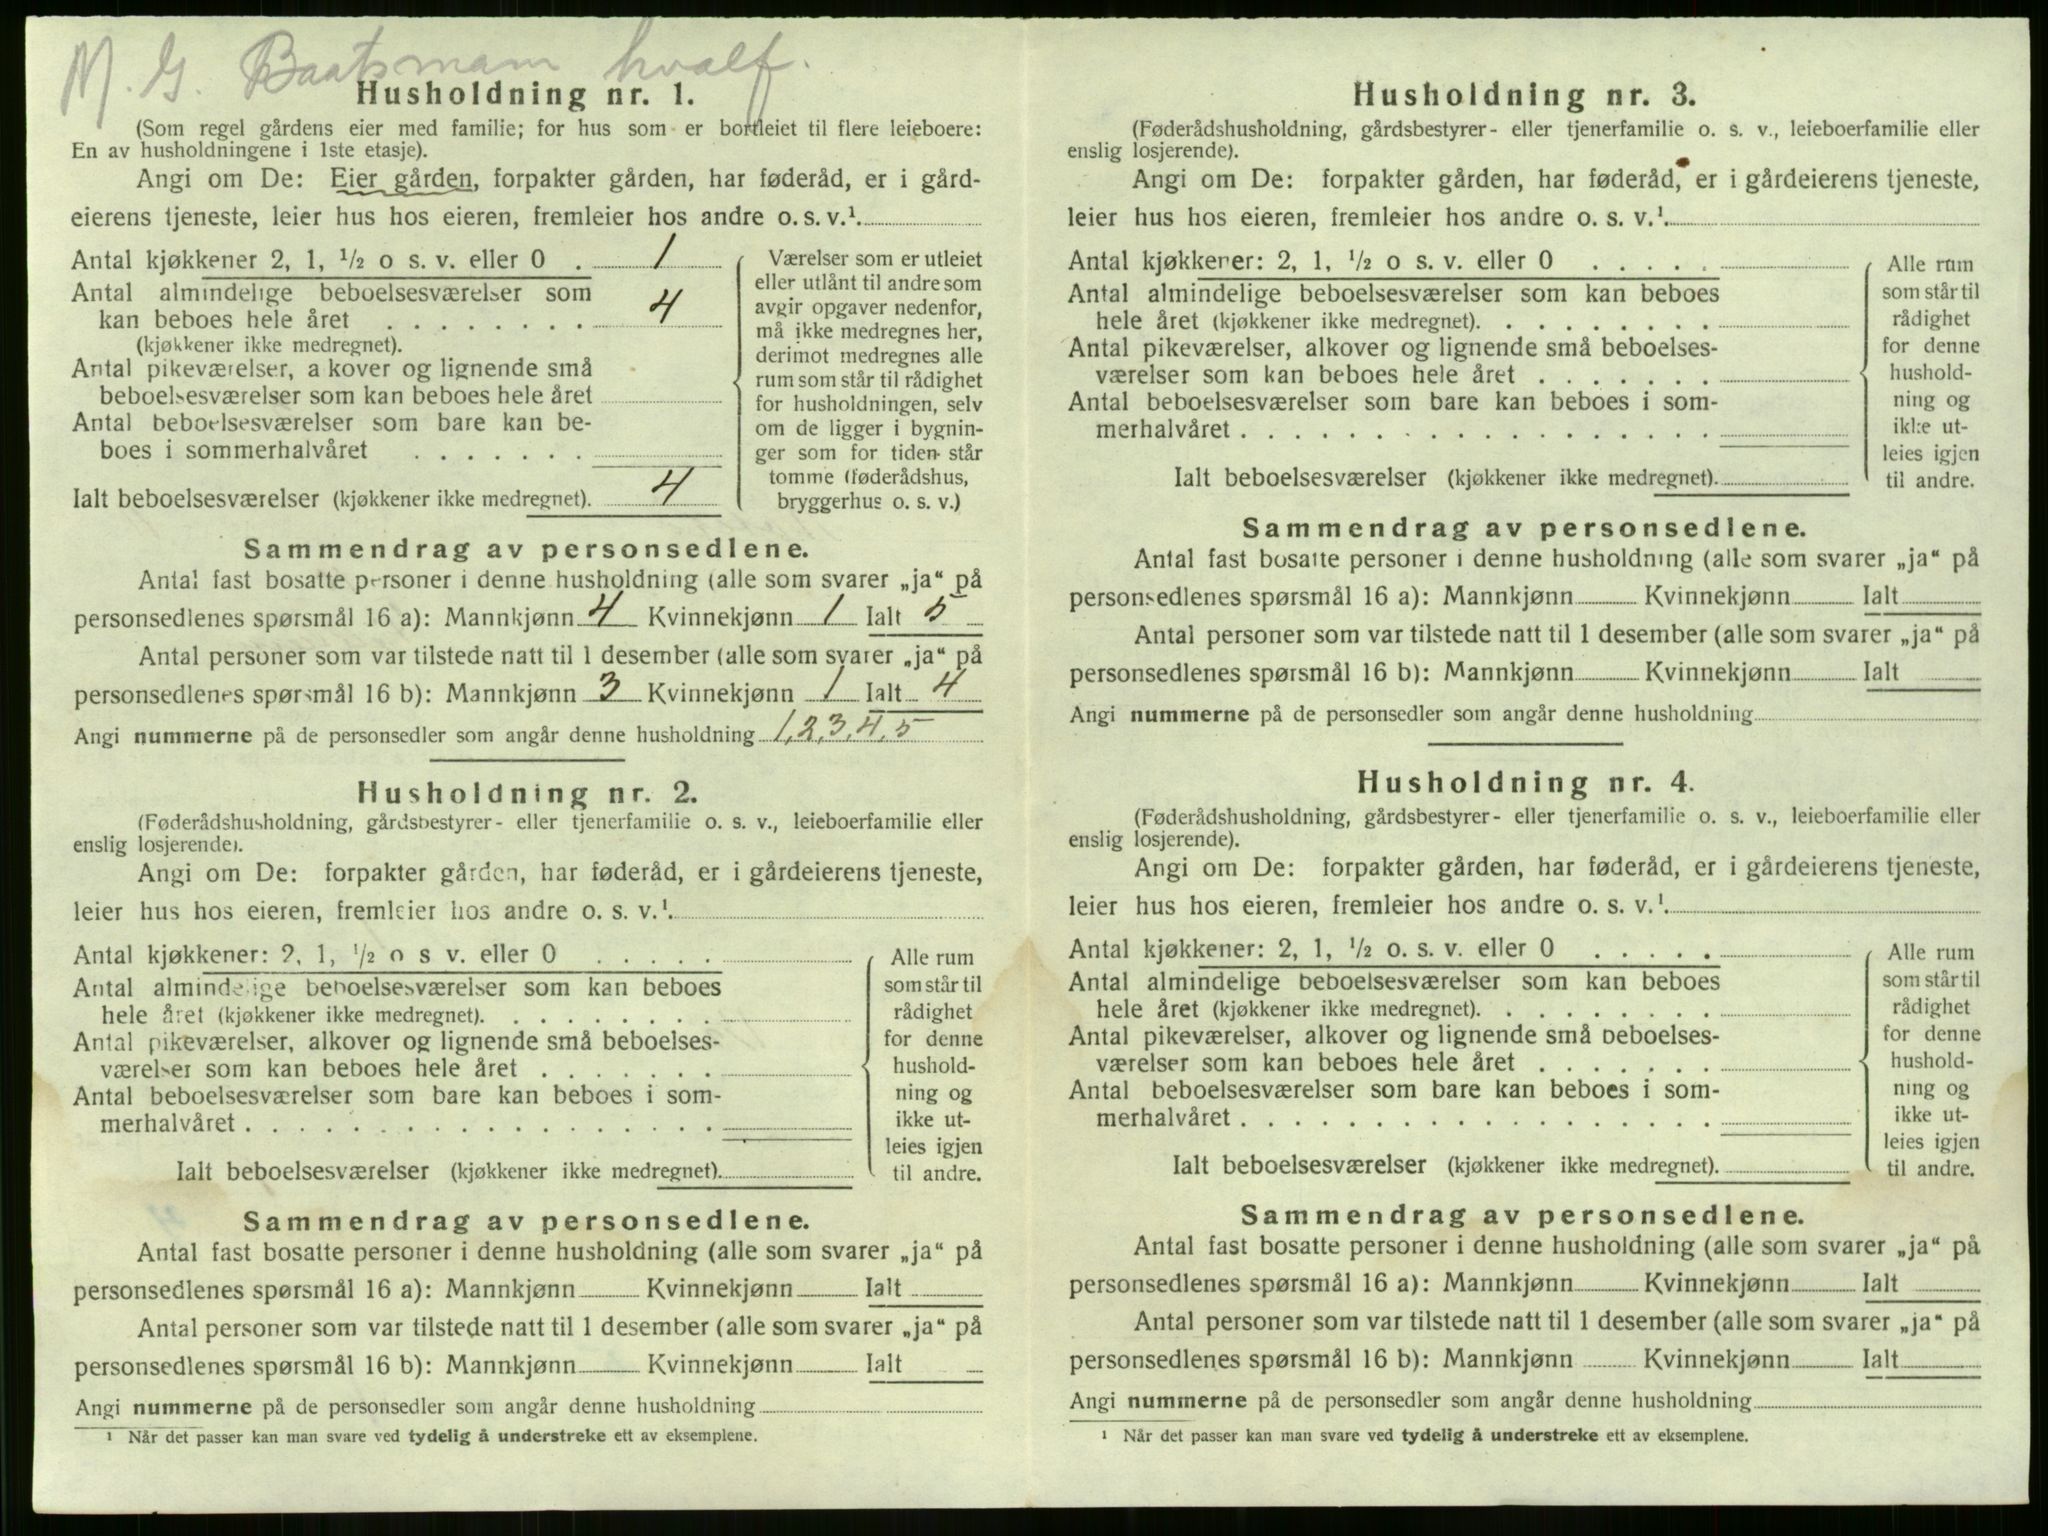 M. G. Baatsmann hvalf.
Husholdning nr. 1.
(Som regel gårdens eier med familie; for hus som er bortleiet til flere leieboere:
En av husholdningene i 1ste etasje).
Angi om De: Eier gården, forpakter gården, har føderåd, er i gård-
eierens tjeneste, leier hus hos eieren, fremleier hos andre o. s. v.¹.
Antal kjøkkener 2, 1, ½ o s. v. eller 0 . 1
Antal almindelige beboelsesværelser som
kan beboes hele året . . . . . . . . 4
(kjøkkener ikke medregnet).
Antal pikeværelser, a kover og lignende små
beboelsesværelser som kan beboes hele året
Antal beboelsesværelser som bare kan be-
boes i sommerhalvåret . . . . . . .
Ialt beboelsesværelser (kjøkkener ikke medregnet). 4
Værelser som er utleiet
eller utlånt til andre som
avgir opgaver nedenfor,
må ikke medregnes her,
derimot medregnes alle
rum som står til rådighet
for husholdningen, selv
om de ligger i bygnin-
ger som for tiden står
tomme (føderådshus,
bryggerhus o. s. v.)
Sammendrag av personsedlene.
Antal fast bosatte personer i denne husholdning (alle som svarer „ja“ på
personsedlenes spørsmål 16 a): Mannkjønn 4 Kvinnekjønn 1 Ialt 5
Antal personer som var tilstede natt til 1 desember (alle som svarer „ja“ på
personsedlenes spørsmål 16 b): Mannkjønn 3 Kvinnekjønn 1 Ialt 4
Angi nummerne på de personsedler som angår denne husholdning 1, 2, 3, 4, 5
Husholdning nr. 2.
(Føderådshusholdning, gårdsbestyrer- eller tjenerfamilie o. s. v., leieboerfamilie eller
enslig losjerende).
Angi om De: forpakter gården, har føderåd, er i gårdeierens tjeneste,
leier hus hos eieren, fremleier hos andre o. s. v.¹.
Antal kjøkkener: 2, 1, ½ o s v. eller 0 . . . . .
Antal almindelige beboelsesværelser som kan beboes
hele året (kjøkkener ikke medregnet). . . . . . . . .
Antal pikeværelser, alkover og lignende små beboelses-
værelser som kan beboes hele året . . . . . . .
Antal beboelsesværelser som bare kan beboes i som-
merhalvåret . . . . . . . . . . . . . . . . . .
Ialt beboelsesværelser (kjøkkener ikke medregnet).
Alle rum
som står til
rådighet
for denne
hushold-
ning og
ikke ut-
leies igjen
til andre.
Sammendrag av personsedlene.
Antal fast bosatte personer i denne husholdning (alle som svarer „ja“ på
personsedlenes spørsmål 16 a): Mannkjønn Kvinnekjønn Ialt
Antal personer som var tilstede natt til 1 desember (alle som svarer „ja“ på
personsedlenes spørsmål 16 b): Mannkjønn Kvinnekjønn Ialt
Angi nummerne på de personsedler som angår denne husholdning
¹ Når det passer kan man svare ved tydelig å understreke ett av eksemplene.
Husholdning nr. 3.
(Føderådshusholdning, gårdsbestyrer- eller tjenerfamilie o. s. v., leieboerfamilie eller
enslig losjerende).
Angi om De: forpakter gården, har føderåd, er i gårdeierens tjeneste,
leier hus hos eieren, fremleier hos andre o. s. v.¹.
Antal kjøkkener: 2, 1, ½ o s. v. eller 0 . . . . .
Antal almindelige beboelsesværelser som kan beboes
hele året (kjøkkener ikke medregnet). . . . . . . . .
Antal pikeværelser, alkover og lignende små beboelses-
værelser som kan beboes hele året . . . . . . .
Antal beboelsesværelser som bare kan beboes i som-
merhalvåret . . . . . . . . . . . . . . . . . .
Ialt beboelsesværelser (kjøkkener ikke medregnet).
Alle rum
som står til
rådighet
for denne
hushold-
ning og
ikke ut-
leies igjen
til andre.
Sammendrag av personsedlene.
Antal fast bosatte personer i denne husholdning (alle som svarer „ja“ på
personsedlenes spørsmål 16 a): Mannkjønn Kvinnekjønn Ialt
Antal personer som var tilstede natt til 1 desember (alle som svarer „ja“ på
personsedlenes spørsmål 16 b): Mannkjønn Kvinnekjønn Ialt
Angi nummerne på de personsedler som angår denne husholdning
Husholdning nr. 4.
(Føderådshusholdning, gårdsbestyrer- eller tjenerfamilie o. s. v., leieboerfamilie eller
enslig losjerende).
Angi om De: forpakter gården, har føderåd, er i gårdeierens tjeneste,
leier hus hos eieren, fremleier hos andre o. s. v.¹.
Antal kjøkkener: 2, 1, ½ o. s. v. eller 0 . . . . .
Antal almindelige beboelsesværelser som kan beboes
hele året (kjøkkener ikke medregnet). . . . . . . . .
Antal pikeværelser, alkover og lignende små beboelses-
værelser som kan beboes hele året . . . . . . .
Antal beboelsesværelser som bare kan beboes i som-
merhalvåret . . . . . . . . . . . . . . . . . .
Ialt beboelsesværelser (kjøkkener ikke medregnet).
Alle rum
som står til
rådighet
for denne
hushold-
ning og
ikke ut-
leies igjen
til andre.
Sammendrag av personsedlene.
Antal fast bosatte personer i denne husholdning (alle som svarer „ja“ på
personsedlenes spørsmål 16 a): Mannkjønn Kvinnekjønn Ialt
Antal personer som var tilstede natt til 1 desember (alle som svarer „ja“ på
personsedlenes spørsmål 16 b): Mannkjønn Kvinnekjønn Ialt
Angi nummerne på de personsedler som angår denne husholdning
¹ Når det passer kan man svare ved tydelig å understreke ett av eksemplene.